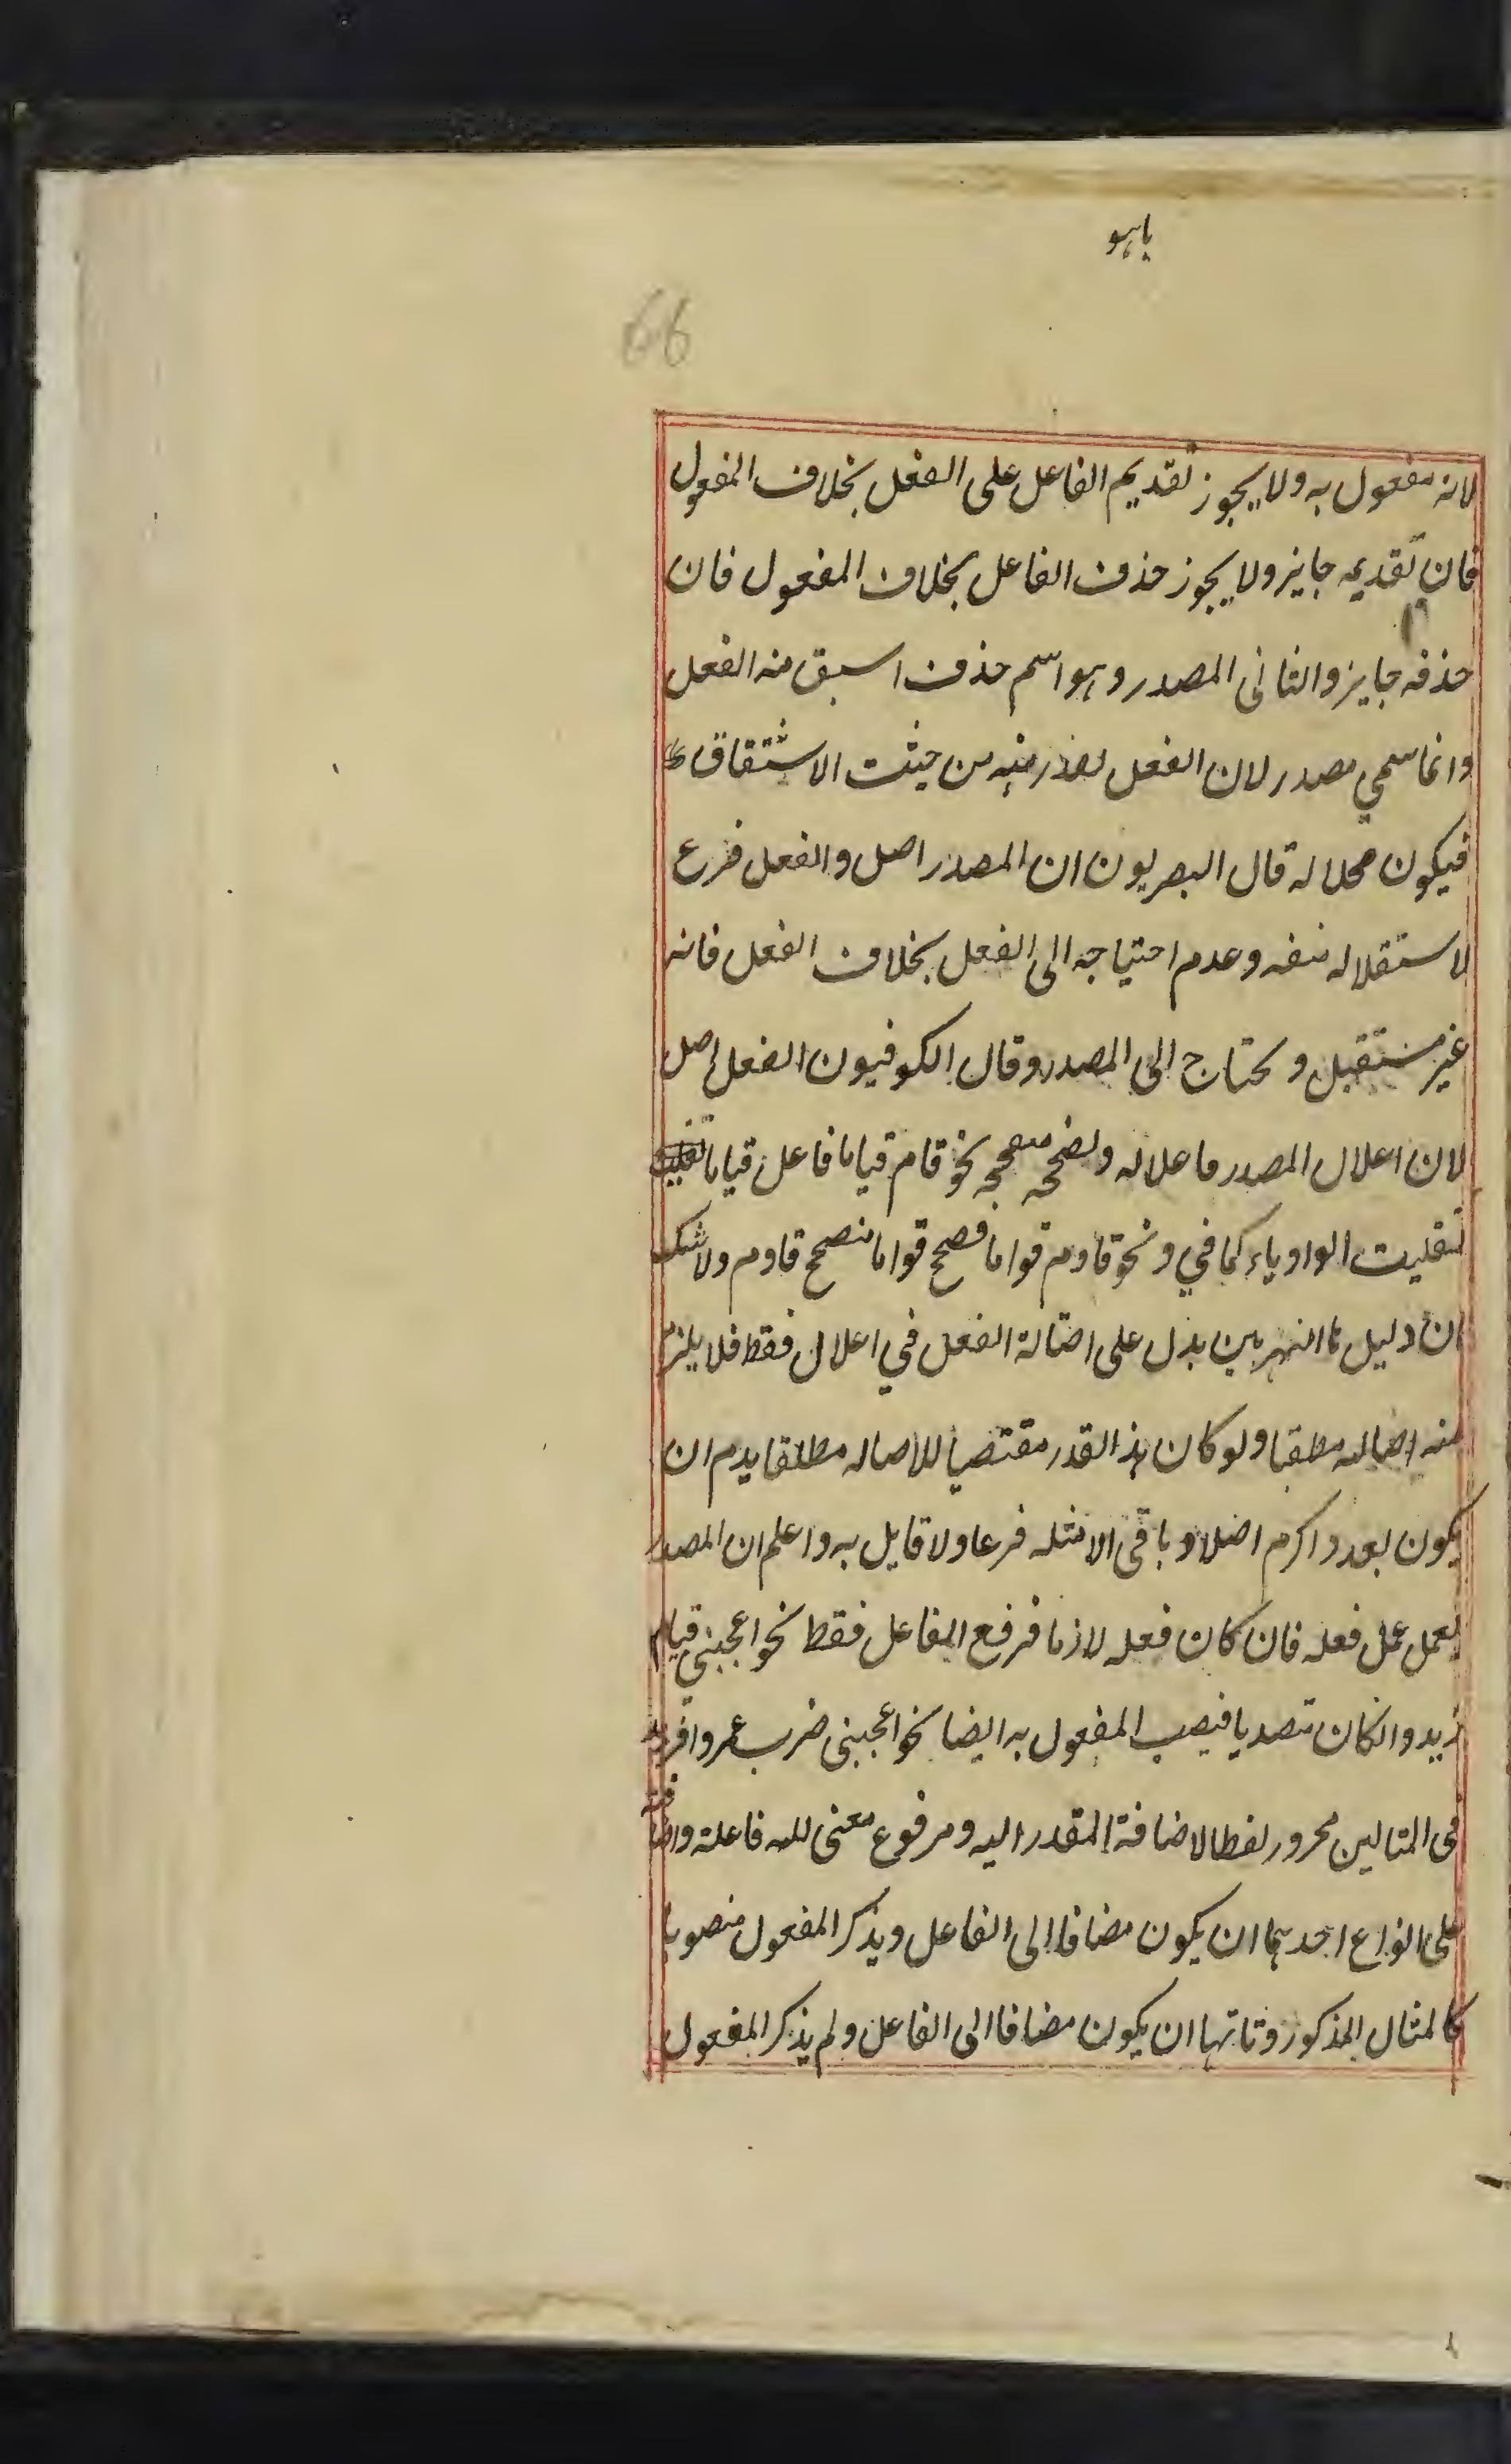 ياهو
66
لانه مفعول به ولا يجوز تقديم الفاعل على الفعل بخلاف المفعول
فان تقديمه جايز ولا يجوز حذف الفاعل بخلاف المفعول فان
حذفه جايز والثانى المصدر وهو اسم حذف اسبق منه الفعل
وانما سمي مصدر لان الفعل منه من حيث الاشتقاق
فيكون محلا له قال البصريون ان المصدر اصل والفعل فرع
لاستقلاله بنفسه وعدم احتياجه الى الفعل بخلاف الفعل فانه
غير مستقبل و يحتاج الى المصدر وقال الكوفيون الفعل اصل
لان اعلال المصدر ماعلاله وبصحة نحو قام قياما فاعل قياما
تقلبت الواو ياء كما في ونحو قاوم قواما فصح قواما منصحح قاوم ولا شك
ان دليل يدل على اصالة الفعل في اعلال فقط فلا يلزم
منه اصالته مطلقا ولو كان هذا القدر مقتضيا للاصاله مطلقا يدم ان
يكون يعد واكرم اصلا و باقى الامثله فرعا ولا قايل به واعلم ان المصدر
يعمل عمل فعله فان كان فعله لازما فرفع الفاعل فقط نحو اعجبنى قيام
زيد وان كان متعديا فينصب المفعول به ايضا نحو اعجبنى ضرب عمروا فزيد
فى المثالين مجرور لفظا لاضافة المقدر اليه ومرفوع معنى لانه فاعله واضافته
على انواع احدهما ان يكون مضافا الى الفاعل ويذكر المفعول منصوبا
كالمثال المذكور وثانيها ان يكون مضافا الى الفاعل ولم يذكر المفعول